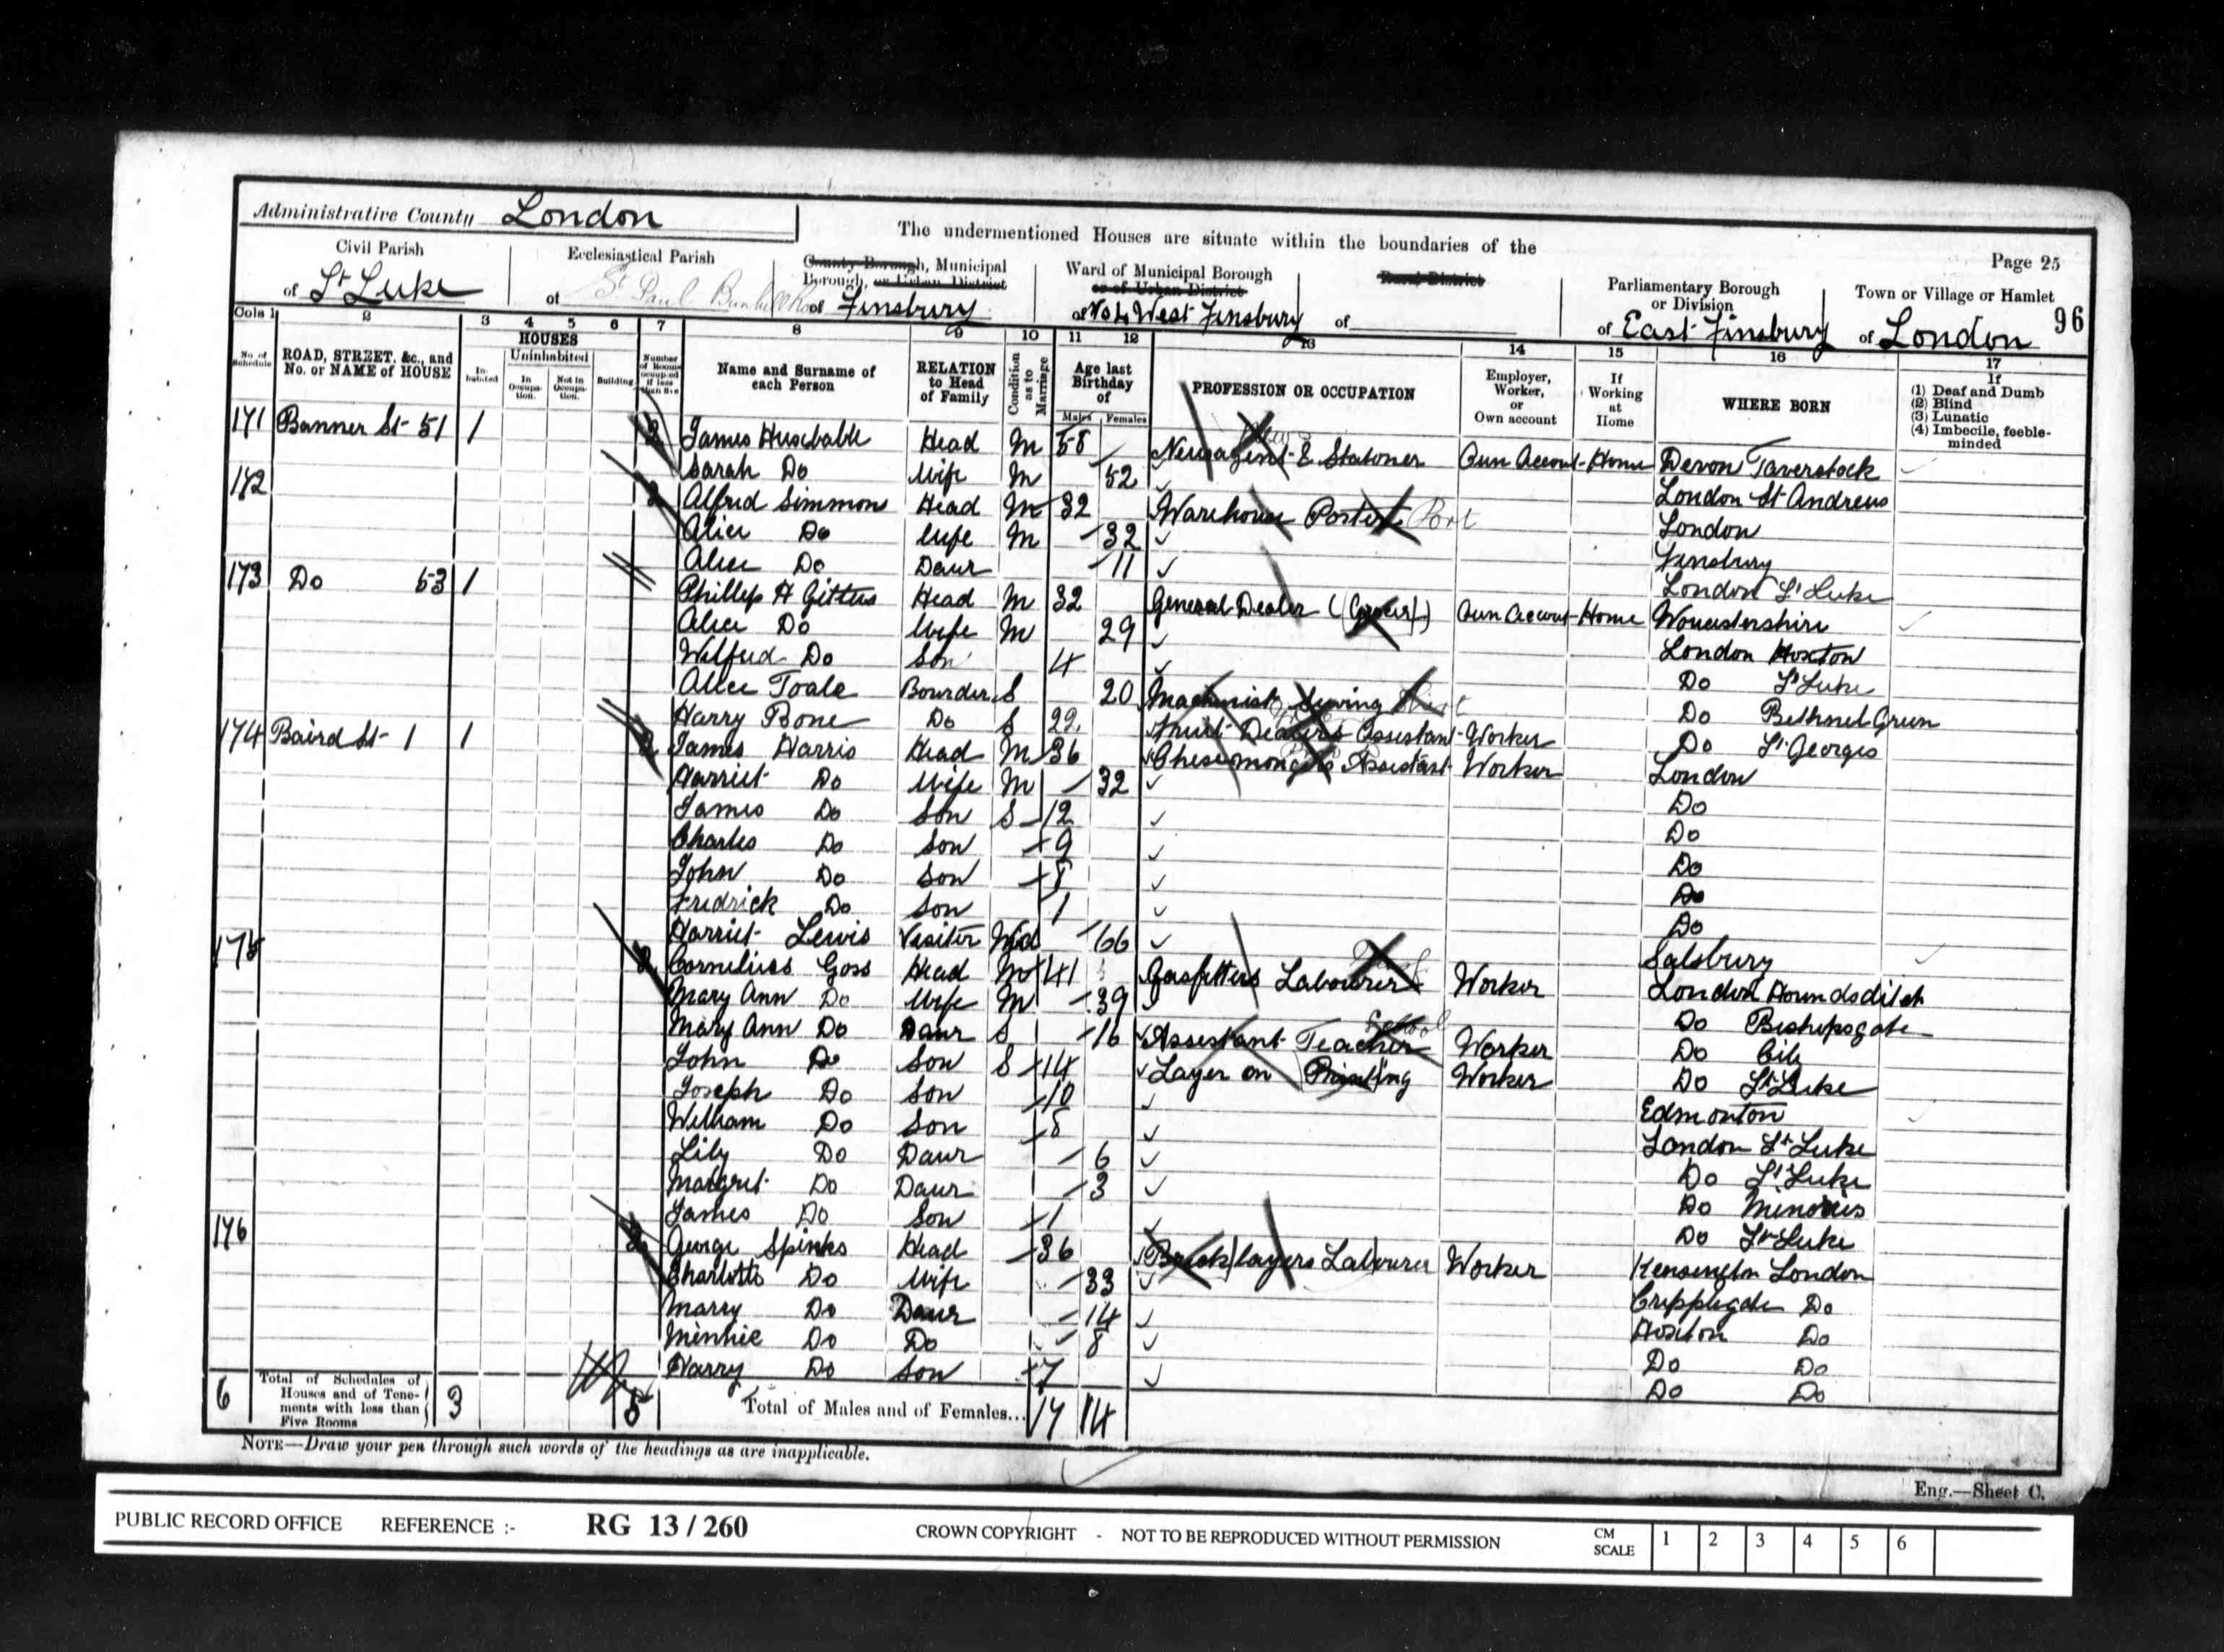 Administrative County London
The undermentioned Houses are situate within the boundaries of the
Page 25
Civil Parish of St Luke
Ecclesiastical Parish of St Paul Bunhill Row
County Borough, Municipal Borough, or Urban District of Finsbury
Ward of Municipal Borough or of Urban District of No 4 West Finsbury
Rural District of
Parliamentary Borough or Division of East Finsbury
Town or Village or Hamlet of London
96
Cols 1 2 3 4 5 6 7 8 9 10 11 12 13 14 15 16 17
No. of Schedule
ROAD, STREET, &c., and No. or NAME of HOUSE
HOUSES
Inhabited
Uninhabited
In Occupation.
Not in Occupation.
Building
Number of Rooms occupied if less than five
Name and Surname of each Person
RELATION to Head of Family
Condition as to Marriage
Age last Birthday of
Males Females
PROFESSION OR OCCUPATION
Employer, Worker, or Own account
If Working at Home
WHERE BORN
If
(1) Deaf and Dumb
(2) Blind
(3) Lunatic
(4) Imbecile, feeble-minded
171 Banner St 51 1 2 James Huxtable Head M 58 Newsagent & Stationer News Own Account Home Devon Taverstock
Sarah Do Wife M 52 London St Andrews
172 2 Alfred Simmon Head M 32 Warehouse Porter Port London
Alice Do Wife M 32 Finsbury
Alice Do Daur 11 London St Luke
173 Do 53 1 Phillip H Gittus Head M 32 General Dealer (Grocer) Own Account Home Woucestershire
Alice Do Wife M 29 London Hoxton
Wilfred Do Son 4 Do St Luke
Alice Toale Bourder S 20 Machinist Sewing Do Bethnel Green
Harry Bone Do S 22 Fruit Dealers Assistant Worker Do St Georges
174 Baird St 1 1 2 James Harris Head M 36 Chesemongers Assistant Worker London
Harriet Do Wife M 32 Do
James Do Son S 12 Do
Charles Do Son 9 Do
John Do Son 8 Do
Fredrick Do Son 1 Do
Harriet Lewis Visitor Wd 66 Salsbury
175 2 Cornelius Goss Head M 41 Gasfitters Labourer Worker London Houndsditch
Mary Ann Do Wife M 39 Do Bishopsgate
Mary Ann Do Daur S 16 Assistant Teacher School Worker Do City
John Do Son S 14 Layer on Printing Worker Do St Luke
Joseph Do Son 10 Edmonton
William Do Son 8 London St Luke
Lily Do Daur 6 Do St Luke
Margret Do Daur 3 Do Minories
James Do Son 1 Do St Luke
176 2 George Spinks Head 36 Bricklayers Labourer Worker Kensington London
Charlotte Do Wife 33 Cripplegate Do
Marry Do Daur 14 Hoxton Do
Minnie Do Do 8 Do Do
Harry Do Son 7 Do Do
6 Total of Schedules of Houses and of Tenements with less than Five Rooms 3 5 Total of Males and of Females... 17 14
NOTE—Draw your pen through such words of the headings as are inapplicable.
Eng.—Sheet C.
PUBLIC RECORD OFFICE REFERENCE :- RG 13 / 260 CROWN COPYRIGHT - NOT TO BE REPRODUCED WITHOUT PERMISSION CM SCALE 1 2 3 4 5 6